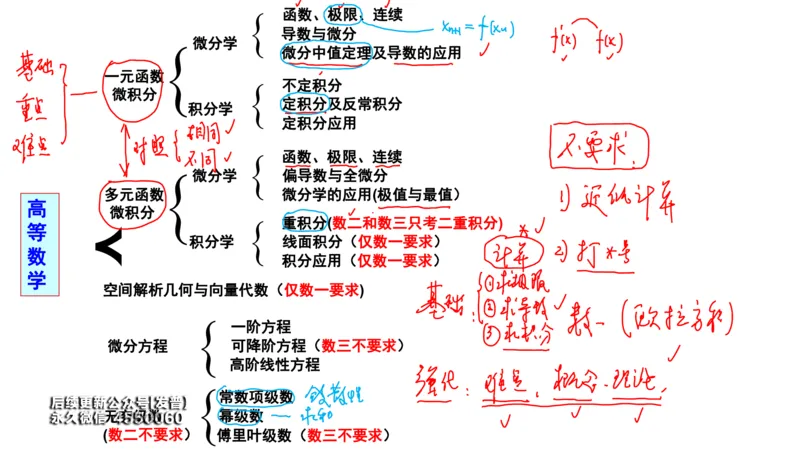 函数、极限、连续
x_{n+1} = f(x_n)
微分学
导数与微分
f'(x) f(x)
微分中值定理及导数的应用
基础
一元函数
微积分
不定积分
重点
积分学
定积分及反常积分
难点
定积分应用
对照
相同
不同
不要求
函数、极限、连续
微分学
偏导数与全微分
多元函数
微积分
微分学的应用(极值与最值)
1) 近似计算
高等数学
重积分(数二和数三只考二重积分)
积分学
线面积分（仅数一要求）
计算
2) 打*号
积分应用（仅数一要求）
空间解析几何与向量代数（仅数一要求)
基础:
①求极限
②求导数
③求积分
数一 (欧拉方程)
一阶方程
微分方程
可降阶方程（数三不要求）
高阶线性方程
强化: 难点、概念、理论,
常数项级数
敛散性
后续更新公众号[发普]
永久微信
幂级数 — 求和
(数二不要求）
傅里叶级数（数三不要求）